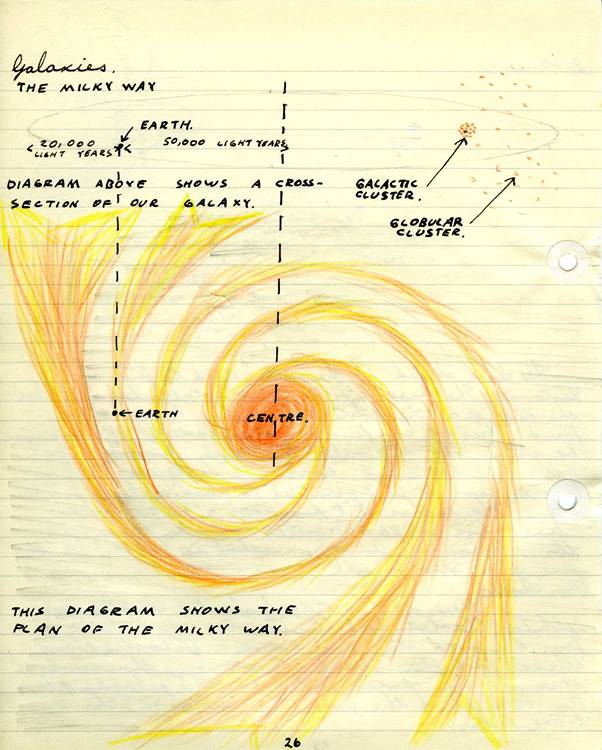 Galaxies.
THE MILKY WAY
EARTH.
20,000
LIGHT YEARS
50,000 LIGHT YEARS
DIAGRAM ABOVE SHOWS A CROSS-
SECTION OF OUR GALAXY.
GALACTIC
CLUSTER.
GLOBULAR
CLUSTER.
EARTH
CENTRE.
THIS DIAGRAM SHOWS THE
PLAN OF THE MILKY WAY.
26